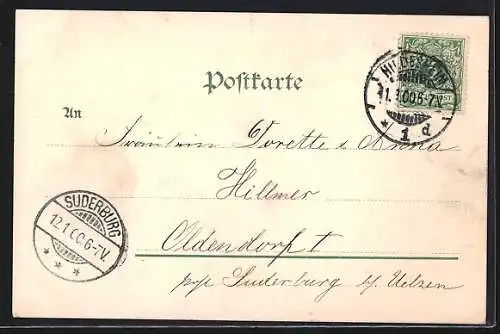 Postkarte
HILDESHEIM
11.1.00.6-7V.
* 1 d
An
Fräulein Dorette & Anna
Hillmer
Oldendorf I
SUDERBURG
12.1.00.6-7V.
* * *
p/o Suderburg b/ Uelzen